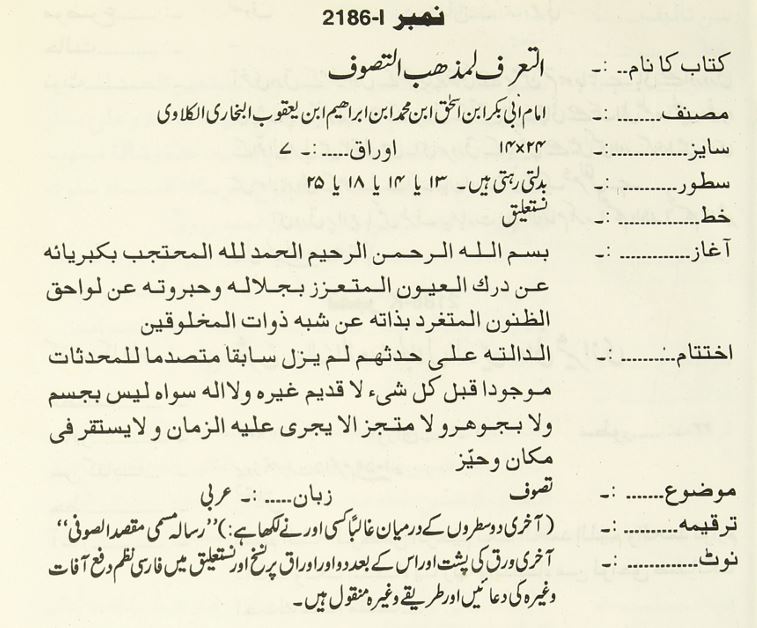 نمبر 2186-I
کتاب کا نام.. :۔ التعرف لمذھب التصوف
مصنف........ :۔ امام ابی بکر ابن اسحٰق ابن محمد ابن ابراھیم ابن یعقوب البخاری الکلاوی
سایز............ :۔ ۱۴x۲۴ اوراق.....:۔ ۷
سطور.......... :۔ بدلتی رہتی ہیں۔ ۱۳ یا ۱۴ یا ۱۸ یا ۲۵
خط............. :۔ نستعلیق
آغاز............ :۔ بسم اللہ الرحمن الرحیم الحمد للہ المحتجب بکبریائہ
عن درك العیون المتعزز بجلالہ وحبروتہ عن لواحق
الظنون المتغرد بذاتہ عن شبہ ذوات المخلوقین
اختتام.......... :۔ الدالتہ علی حدثھم لم یزل سابقا متصدما للمحدثات
موجودا قبل کل شیء لا قدیم غیرہ ولاالہ سواہ لیس بجسم
ولا بجوھرو لا متجز الا یجری علیہ الزمان و لایستقر فی
مکان وحیّز
موضوع....... :۔ تصوف زبان.....:۔ عربی
ترقیمہ......... :۔ (آخری دو سطروں کے درمیان غالباً کسی اور نے لکھا ہے:)”رسالہ مسمی مقصد الصوفی“
نوٹ............ :۔ آخری ورق کی پشت اور اس کے بعد دو اور اوراق پر نسخ اور نستعلیق میں فارسی نظم دفع آفات
وغیرہ کی دعائیں اور طریقے وغیرہ منقول ہیں۔